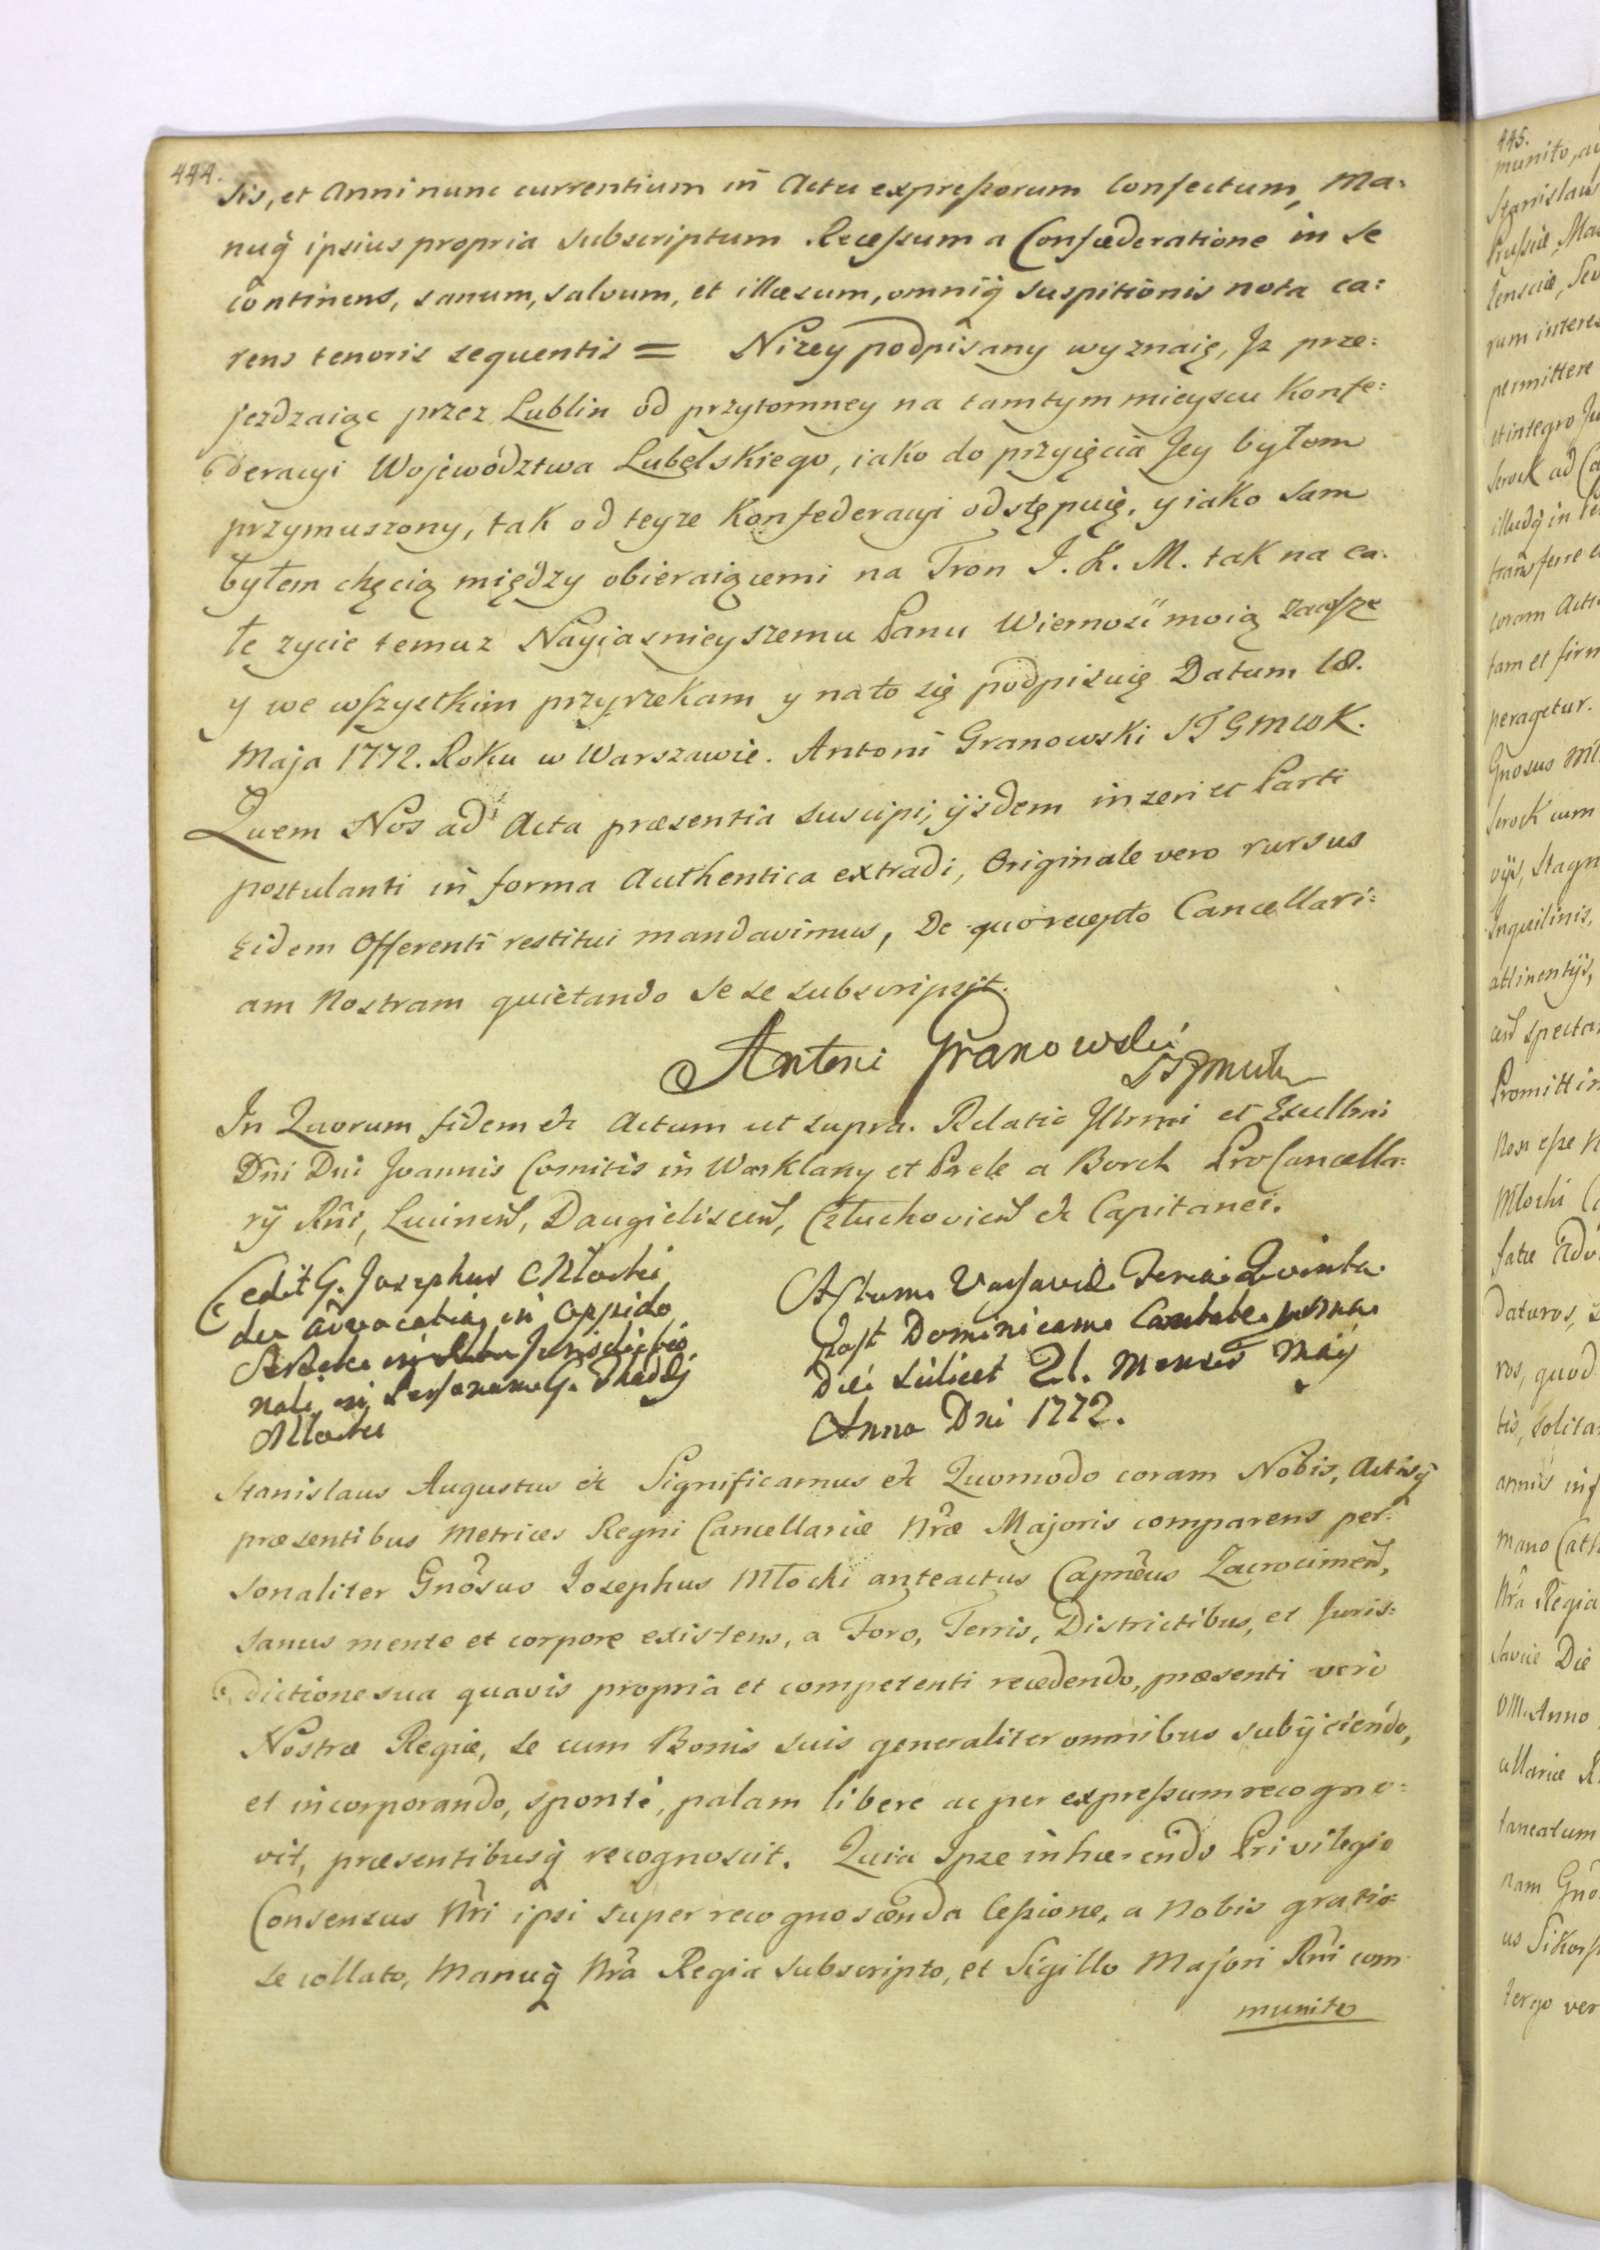 444.
sis, et Anni nunc currentium in Actu expressorum Confectum, Ma:
nuq̃ ipsius propria subscriptum Recessum a Confœderatione in se
continens, sanum, salvum, et illæsum, omniq̃ suspitionis nota ca:
rens tenoris sequentis = Nizey podpisany wyznaię, Jz prze:
jezdzaiąc przez Lublin od przytomney na tamtym mieyscu Konfe:
deracyi Województwa Lubelskiego, iako do przyięcia Jey byłem
przymuszony, tak od teyze Konfederacyi odstępuię, y iako sam
byłem chęcią między obieraiącemi na Tron J. K. M. tak na ca:
łe zycie temuz Nayiasnieyszemu Panu Wiernosć moią zawsze
y we wszystkim przyrzekam y na to się podpisuię Datum 18.
Maja 1772. Roku w Warszawie. Antoni Granowski STGMWK.
Quem Nos ad Acta præsentia suscipi, ijsdem inseri et Parti
postulanti in forma Authentica extradi, Originale vero rursus
Eidem Offerenti restitui mandavimus, De quo recepto Cancellari:
am Nostram quietando se se subscripsit.
Antoni Granowski
In Quorum fidem &c Actum ut supra. Relatio Jllrmi et Excellmi
Dñi Dni Joannis Comitis in Warklany et Prele a Borch ProCancella:
rij Rñi, Lucineñ, Daugielisceñ, Człuchovieñ &c Capitanei.
Cedit G. Josephus Młocki
de advocatia in oppido
Serock in Jurisdictio
nali in Personam G. Thaddej
Młocki
Actum Varsaviæ Feria Quinta
post Dominicam Cantate proxima
die scilicet 21. Mensis Maij
Anno Dni 1772.
Stanislaus Augustus &c Significamus &c Quomodo coram Nobis, Actisq̃
præsentibus Metrices Regni Cancellariæ Nræ Majoris comparens per:
sonaliter Gnosus Josephus Młocki anteactus Capneus Zacrocimeñ,
sanus mente et corpore existens, a Foro, Terris, Districtibus, et Juris:
dictione sua quavis propria et competenti recedendo, præsenti vero
Nostræ Regiæ, se cum Bonis suis generaliter omnibus subijciendo,
et incorporando, sponte, palam libere ac per expressum recogno:
vit, præsentibusq̃ recognoscit. Quia Ipse inhærendo Privilegio
Consensus Nri ipsi super recognoscenda Cessione, a Nobis gratio:
se collato, Manuq̃ Nra Regia subscripto, et Sigillo Majori Rñi com
munito
445.
Stanislaus
rum interes
permittere
et integro Ju
Serock ad Ca
transferre
coram Actis
tam et firm
peragetur.
Gnosus Mł
Serock cum
vijs, Stagn
Inquilinis,
attinentijs,
Promittin
Non esse
Młocki
Daturos,
ros, quod
Nra Regia
tergo ver